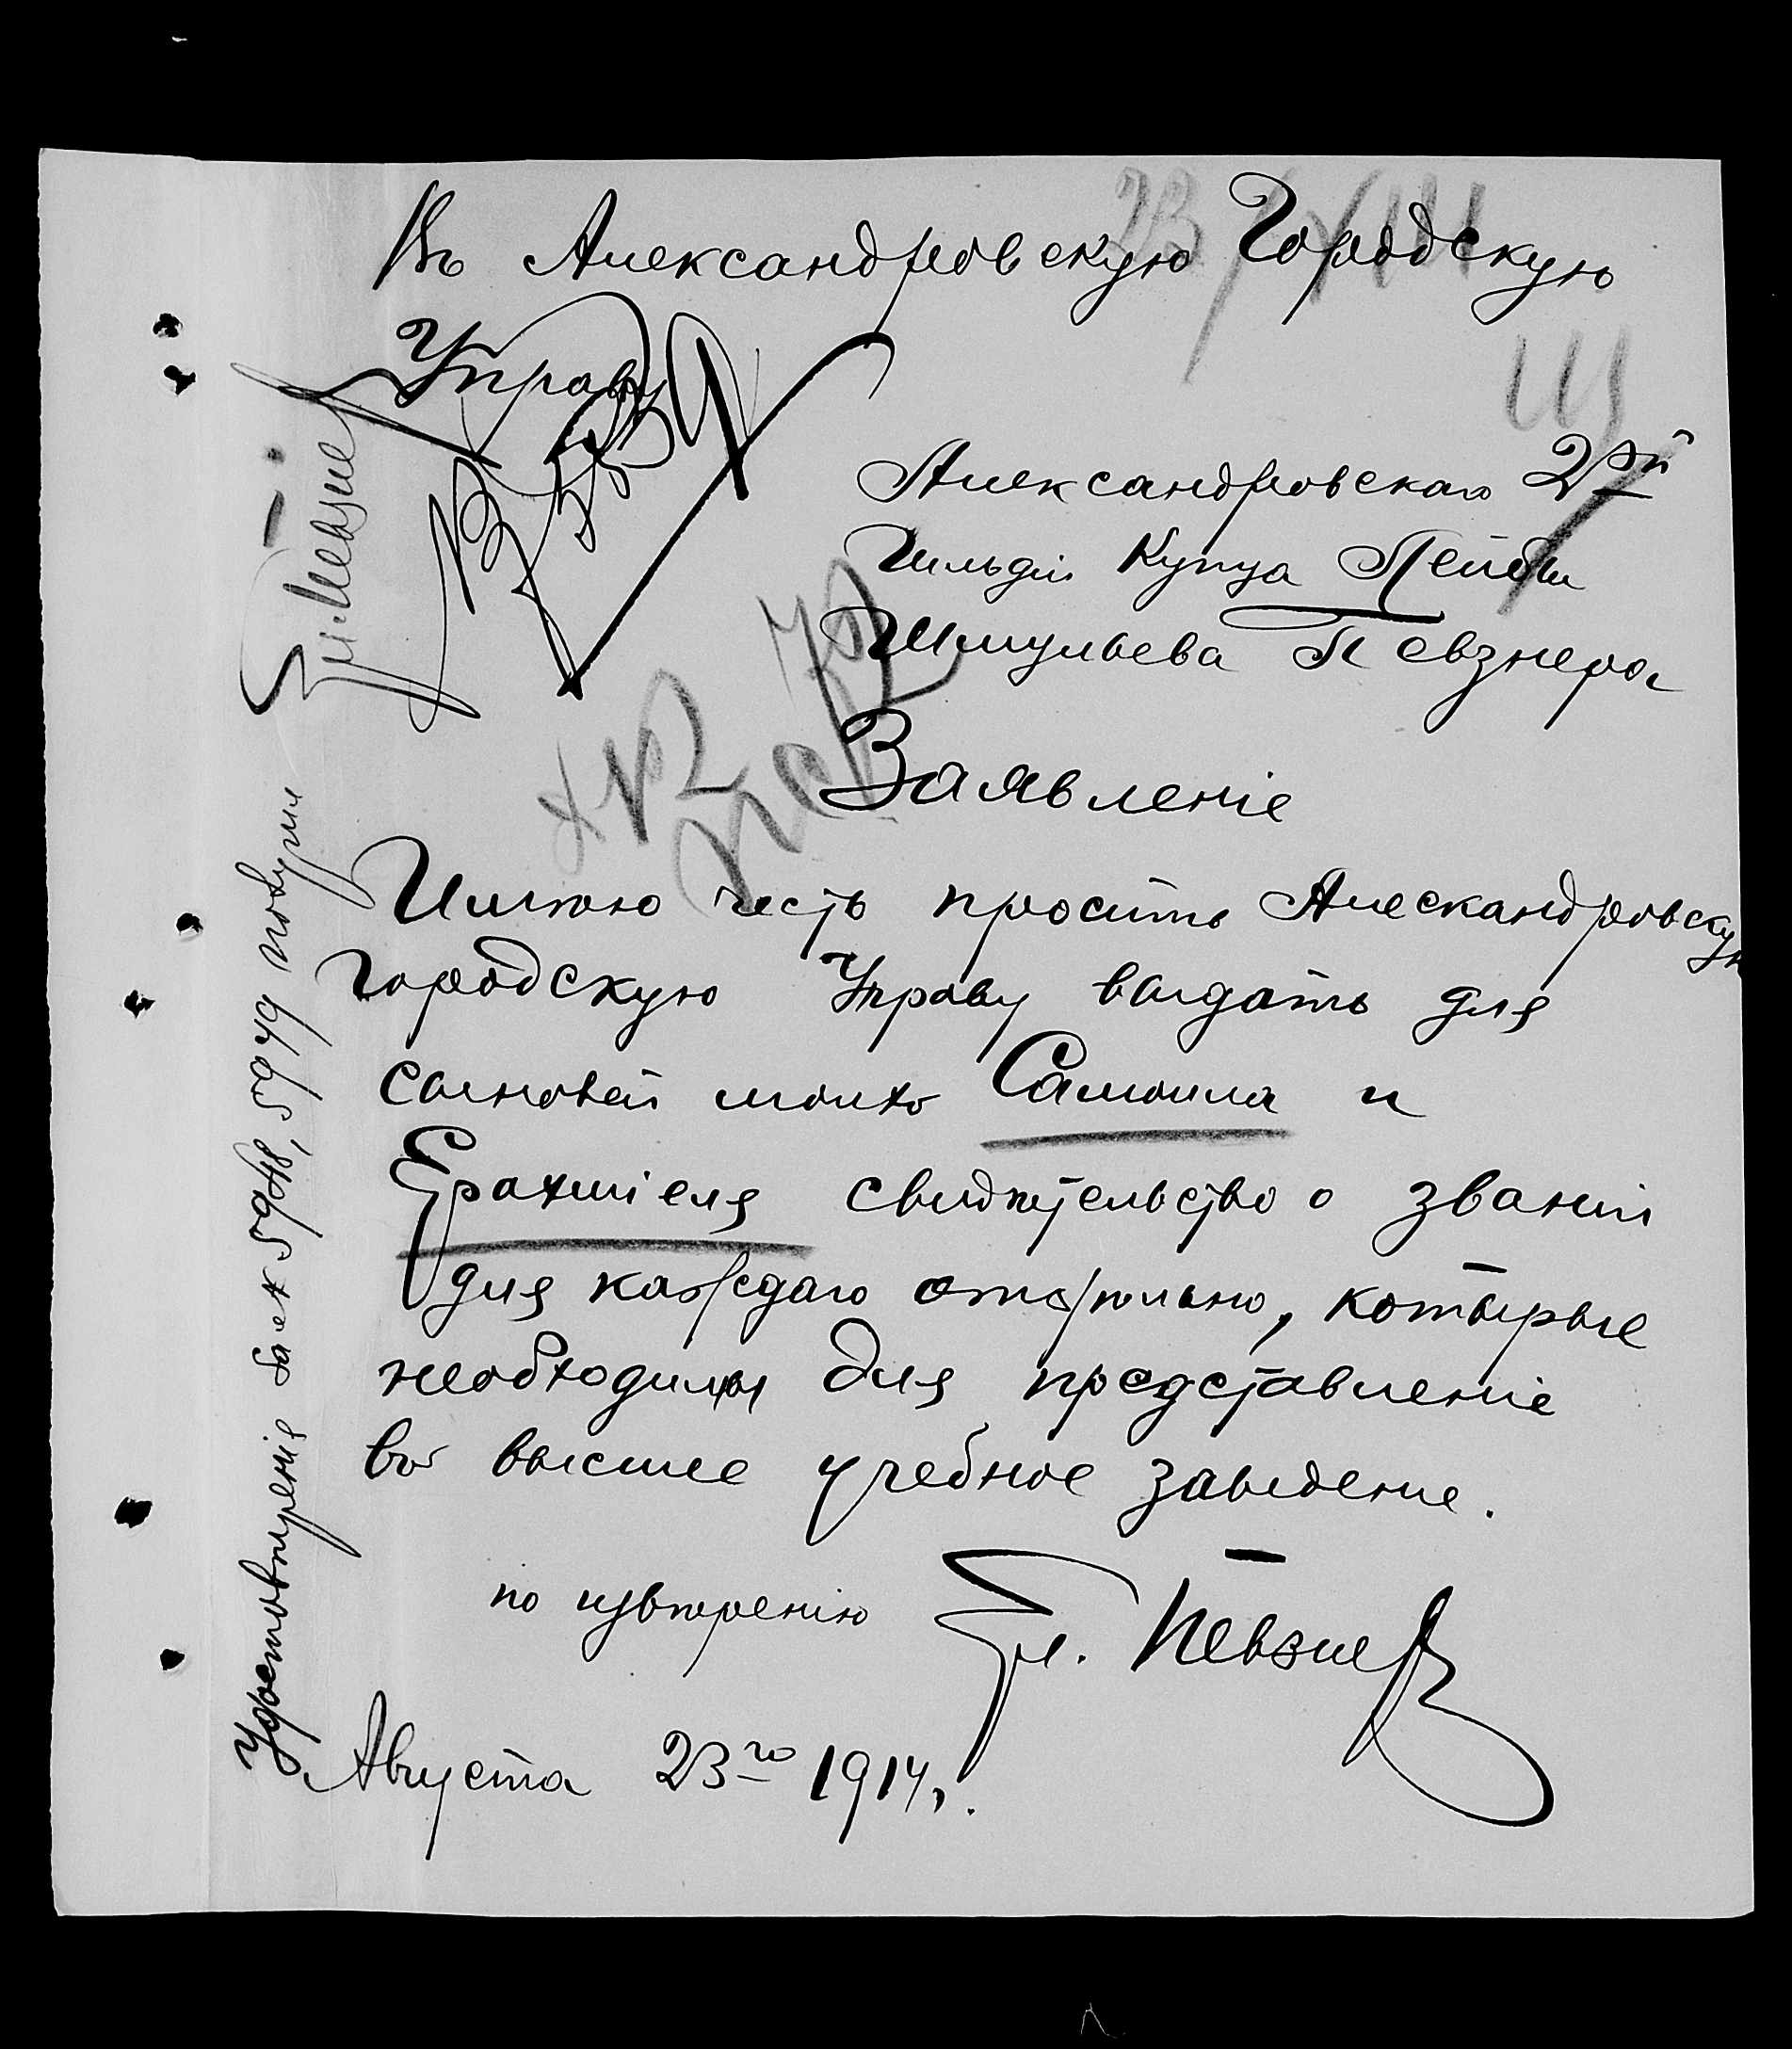 Въ Александровскую Городскую
Управу
Александровскаго 2ой
Гильдіи Купца Лейбы
Шмульева Певзнера
Заявленіе
Имѣю честь просить Алескандровскую
Городскую Управу выдать для
сыновей моихъ Самоила и
Ерахміеля свидѣтельство о званіи
для каждаго отдѣльно, которые
необходимы для представленіе
въ высшее учебное заведение.
по довѣренію Ел. Певзнер
Августа 23го 1914г.
Удостовѣренія за № 5948, 5949 получил
Ел. Певзнер